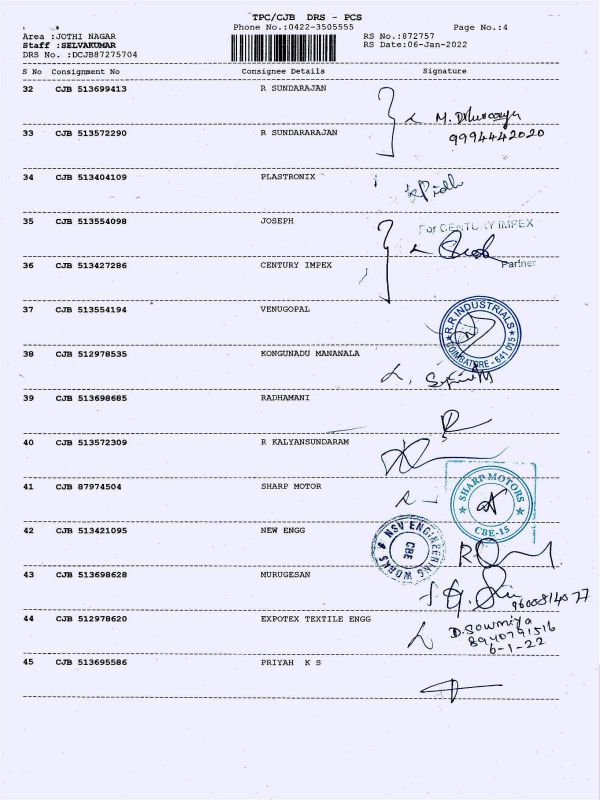 TPC/CJB DRS - PCS
Phone No.:0422-3505555 Page No.:4
Area :JOTHI NAGAR RS No.:872757
Staff :SELVAKUMAR RS Date:06-Jan-2022
DRS No. :DCJB87275704
S No Consignment No Consignee Details Signature
32 CJB 513699413 R SUNDARAJAN
M.
33 CJB 513572290 R SUNDARARAJAN 9994442020
34 CJB 513404109 PLASTRONIX
35 CJB 513554098 JOSEPH For CENTURY IMPEX
36 CJB 513427286 CENTURY IMPEX Partner
37 CJB 513554194 VENUGOPAL
R.R INDUSTRIALS
COIMBATORE - 641 015
38 CJB 512978535 KONGUNADU MANANALA
39 CJB 513698685 RADHAMANI
40 CJB 513572309 R KALYANSUNDARAM
41 CJB 87974504 SHARP MOTOR
SHARP MOTORS
CBE-15
42 CJB 513421095 NEW ENGG
NSV ENGINEERING WORKS
CBE
43 CJB 513698628 MURUGESAN
9600814077
44 CJB 512978620 EXPOTEX TEXTILE ENGG
D.Sowmiya
8940791516
6-1-22
45 CJB 513695586 PRIYAH K S